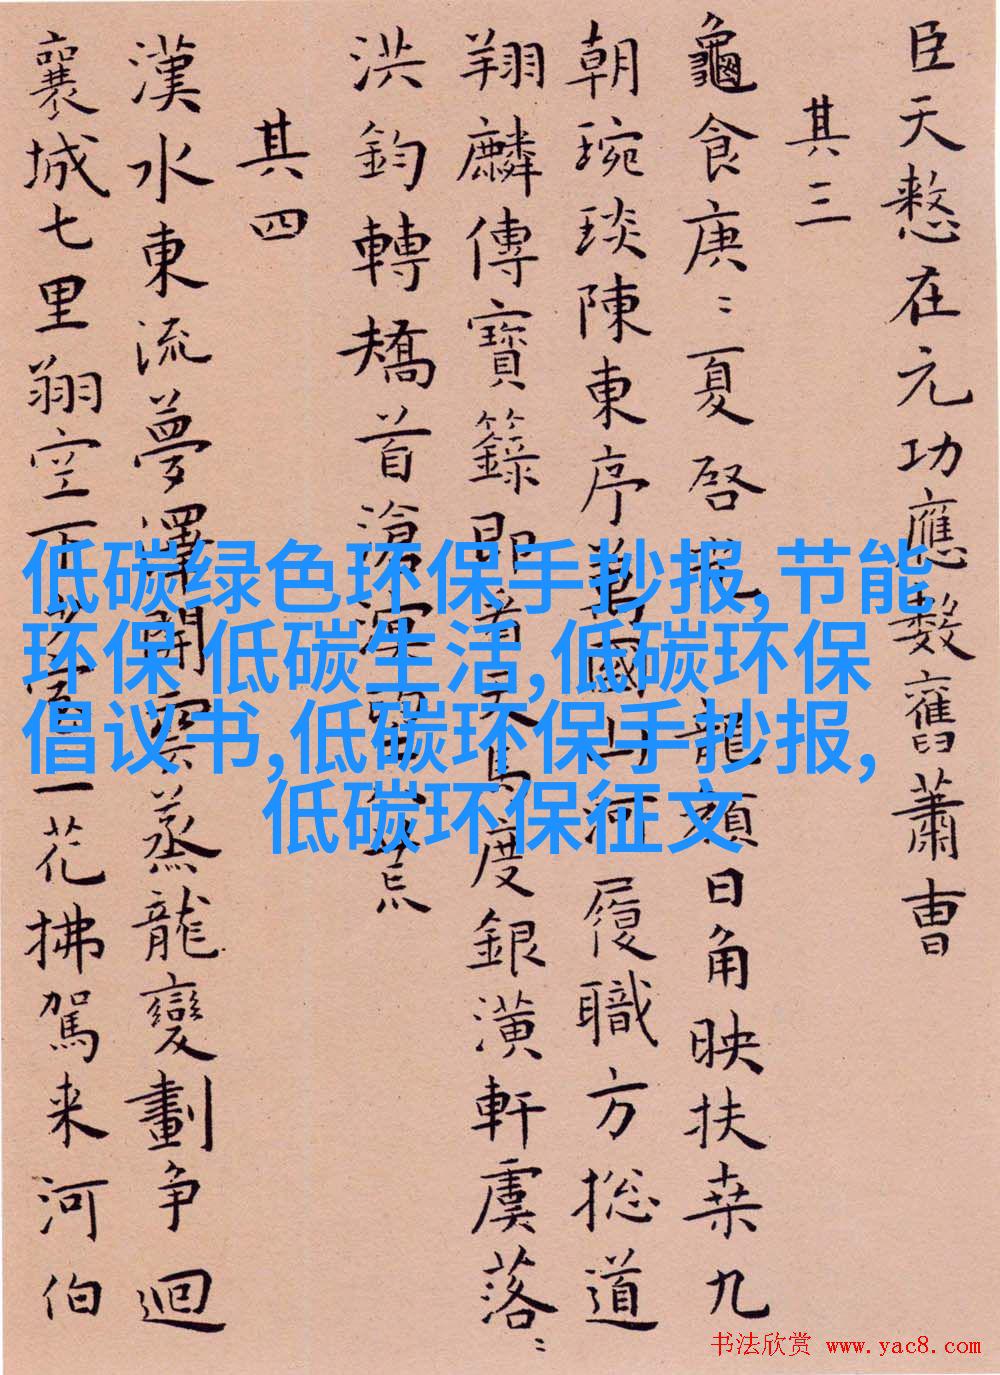 臣天憖在元功應數舊蕭曹
其三
龜食庚〻夏啓光龍顏日角映扶桒九
朝琬琰陳東序萬國山河履職方揔道
翔麟傳寶籙即看天馬度銀潢軒虞落〻
洪鈞轉矯首滄溟荒
其四
漢水東流夢澤開雲蒸龍變劃争迴
襄城七里翔空下一花拂駕来河伯
低碳绿色环保手抄报,节能
环保 低碳生活,低碳环保
倡议书,低碳环保手抄报,
低碳环保征文
书法欣赏 www.yac8.com